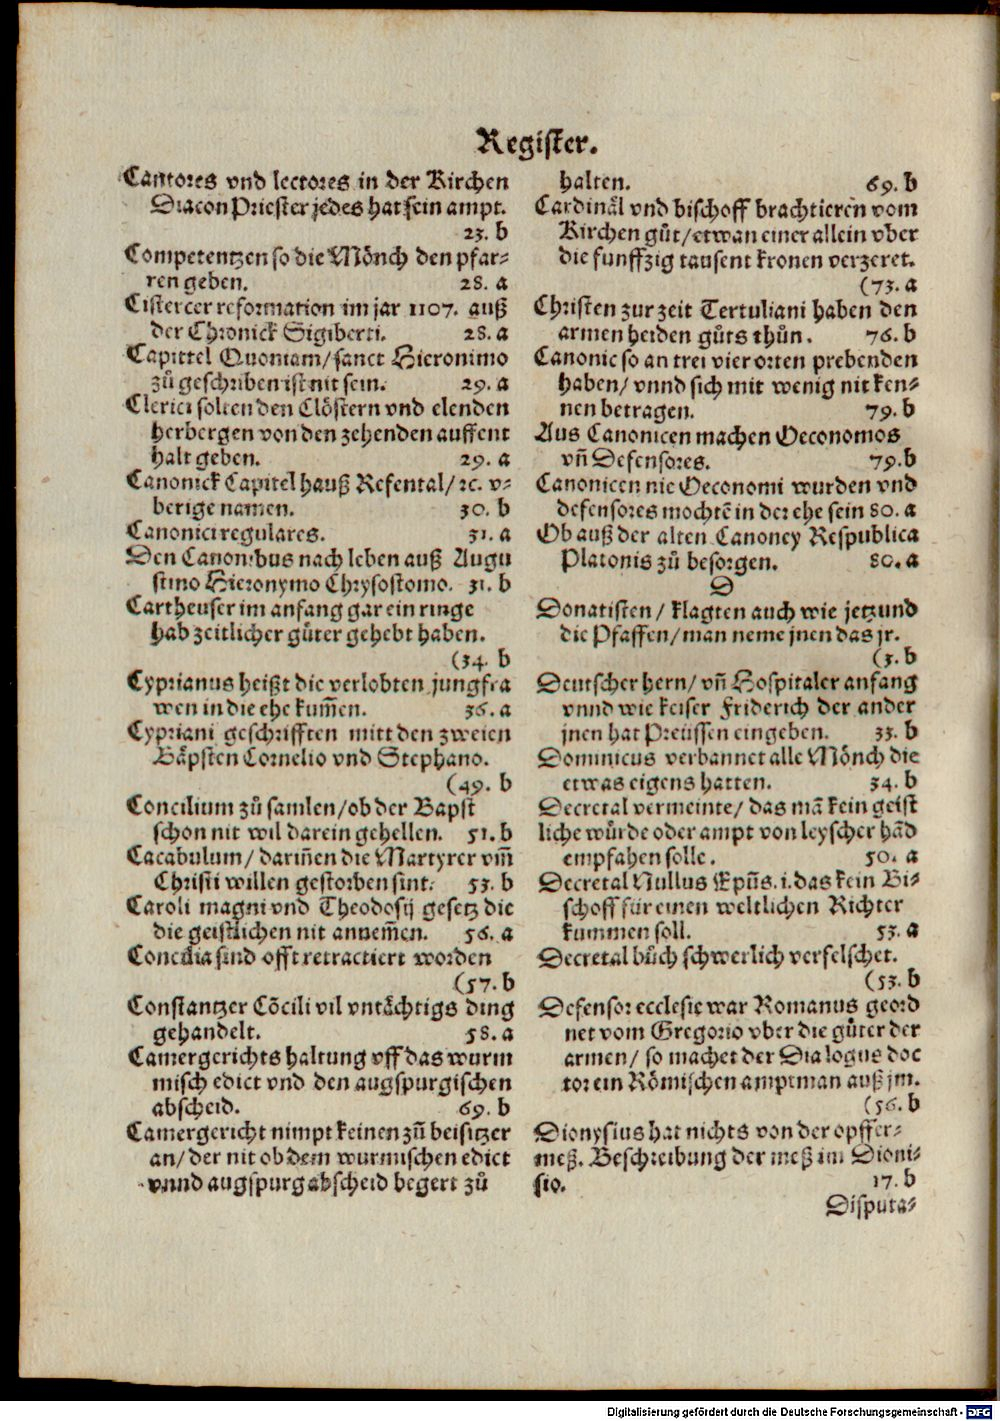 Register.
Cantores vnd lectores in der Kirchen
Diacon Priester jedes hat sein ampt.
23. b
Competentzen so die Mönch den pfar⸗
ren geben. 28. a
Cistercer reformation im jar 1107. auß
der Chronick Sigiberti. 28. a
Capittel Quoniam/ sanct Hieronimo
zů geschriben ist nit sein. 29. a
Clerici solten den Clöstern vnd elenden
herbergen von den zehenden auffent
halt geben. 29. a
Canonick Capitel hauß Refental/ ꝛc. v⸗
berige namen. 30. b
Canonici regulares. 31. a
Den Canonibus nach leben auß Augu
stino Hieronymo Chrysostomo. 31. b
Cartheuser im anfang gar ein ringe
hab zeitlicher gůter gehebt haben.
(34. b
Cyprianus heißt die verlobten jungfra
wen in die ehe kum̃en. 36. a
Cypriani geschrifften mitt den zweien
Bäpsten Cornelio vnd Stephano.
(49. b
Concilium zů samlen/ ob der Bapst
schon nit wil darein gehellen. 51. b
Cacabulum/ darin̄en die Martyrer vm̃
Christi willen gestorben sint. 53. b
Caroli magni vnd Theodosij gesetz die
die geistlichen nit annem̃en. 56. a
Concilia sind offt retractiert worden
(57. b
Constantzer Cõcili vil vntächtigs ding
gehandelt. 58. a
Camergerichts haltung vff das wurm
misch edict vnd den augspurgischen
abscheid. 69. b
Camergericht nimpt keinen zů beisitzer
an/ der nit ob dem wurmischen edict
vnnd augspurg abscheid begert zů
halten. 69. b
Cardinäl vnd bischoff brachtieren vom
Kirchen gůt/ etwan einer allein vber
die funffzig tausent kronen verzeret.
(73. a
Christen zur zeit Tertuliani haben den
armen heiden gůts thůn. 76. b
Canonic so an trei vier orten prebenden
haben/ vnnd sich mit wenig nit ken⸗
nen betragen. 79. b
Aus Canonicen machen Oeconomos
vñ Defensores. 79. b
Canonicen nie Oeconomi wurden vnd
defensores mochtē in der ehe sein 80. a
Ob auß der alten Canoney Respublica
Platonis zů besorgen. 80. a
D
Donatisten/ klagten auch wie jetzund
die Pfaffen/ man neme jnen das jr.
(3. b
Deutscher hern/ vñ Hospitaler anfang
vnnd wie keiser Friderich der ander
jnen hat Preüssen eingeben. 33. b
Dominicus verbannet alle Mönch die
etwas eigens hatten. 34. b
Decretal vermeinte/ das mã kein geist
liche würde oder ampt von leyscher hãd
empfahen solle. 50. a
Decretal Nullus Epūs. i. das kein Bi⸗
schoff für einen weltlichen Richter
kummen soll. 53. a
Decretal bůch schwerlich verfelschet.
(53. b
Defensor ecclesie war Romanus geord
net vom Gregorio vber die gůter der
armen/ so machet der Dialogus doc
tor ein Römischen amptman auß jm.
(56. b
Dionysius hat nichts von der opffer⸗
meß. Beschreibung der meß im Dioni⸗
sio. 17. b
Disputa⸗
Digitalisierung gefördert durch die Deutsche Forschungsgemeinschaft - DFG